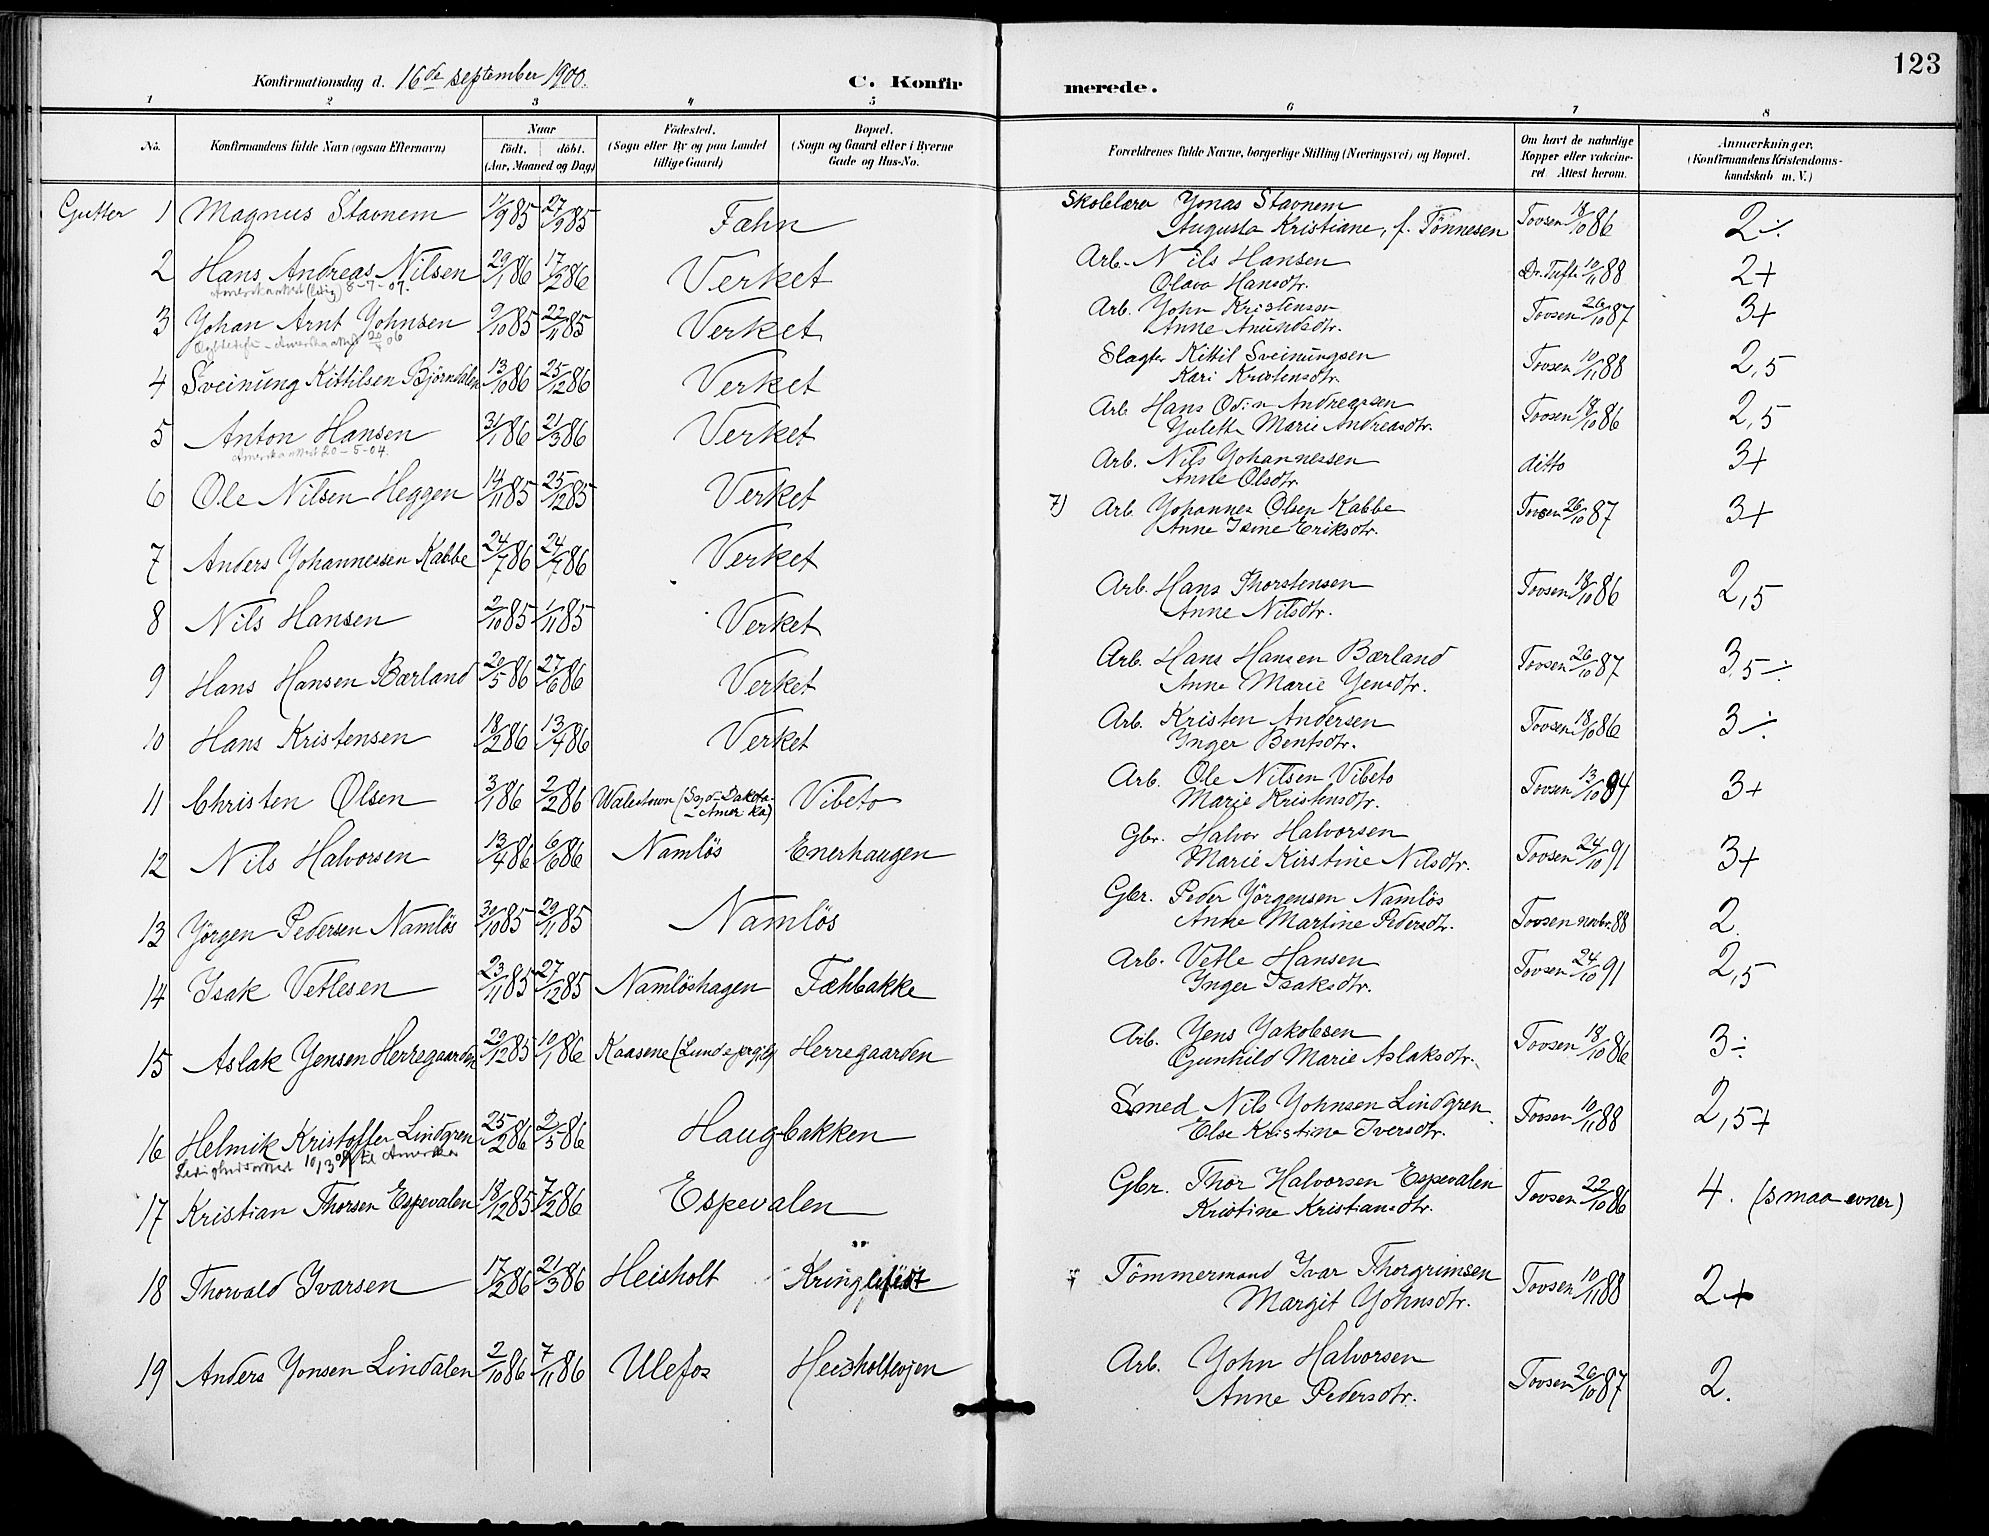 123
Konfirmationsdag d. 16de september 1900.
C. Konfirmerede.
1 2 3 4 5 6 7 8
No.
Konfirmandens fulde Navn (ogsaa Efternavn)
Naar
födt. döbt.
(Aar, Maaned og Dag)
Födested.
(Sogn eller By og paa Landet
tillige Gaard)
Bopæl.
(Sogn og Gaard eller i Byerne
Gade og Hus-No.
Forældrenes fulde Navne, borgerlige Stilling (Næringsvei) og Bopæl.
Om havt de naturlige
Kopper eller vakcine-
ret Attest herom.
Anmærkninger.
(Konfirmandens Kristendoms-
kundskab m. V.)
Gutter 1 Magnus Stavnem 11/9 85 27/9 85 Fæhn Skolelærer Yonas Stavnem Tovsen 18/10 86 2 ÷
Augusta Kristiane, f. Tönnesen
2 Hans Andreas Nilsen 29/1 86 17/2 86 Verket Arb. Nils Hansen Dr. Tufte 10/11 88 2+
Amerikaattest (ledig) 8-7-07. Olava Hansdtr.
3 Yohan Arnt Yohnsen 9/10 85 22/11 85 Verket Arb. Yohn Kristensen Tovsen 26/10 87 3+
Anne Amundsdtr.
4 Sveinung Kittilsen Björndalen 13/10 86 25/12 86 Verket Slagter Kittil Sveinungsen Tovsen 10/11 88 2,5
Kari Kristensdtr.
5 Anton Hansen 31/1 86 21/3 86 Verket Arb. Hans Odin Andreassen Tovsen 18/10 86 2,5
Amerikaattest 20-5-04. Marie Andreasdtr.
6 Ole Nilsen Heggen 14/11 85 25/12 85 Verket Arb. Nils Yohannessen ditto 3+
Anne Olsdtr.
7 Anders Yohannessen Kabbe 24/7 86 24/7 86 Verket 7) Arb. Yohannes Olsen Kabbe Tovsen 26/10 87 3+
Anne Isine Eriksdtr.
8 Nils Hansen 2/10 85 1/11 85 Verket Arb. Hans Thorstensen Tovsen 18/10 86 2,5
Anne Nilsdtr.
9 Hans Hansen Bærland 20/5 86 27/6 86 Verket Arb. Hans Hansen Bærland Tovsen 26/10 87 3,5 ÷
Anne Marie Yensdtr.
10 Hans Kristensen 18/2 86 13/4 86 Verket Arb. Kristen Andersen Tovsen 18/10 86 3 ÷
Ynger Bentsdtr.
11 Christen Olsen 3/1 86 2/2 86 Watertown (Syd-Dakota Vibeto Arb. Ole Nilsen Vibeto Tovsen 13/10 94 3+
- Amerika) Marie Kristensdtr.
12 Nils Halvorsen 13/4 86 6/6 86 Namlös Enerhaugen Gbr. Halvor Halvorsen Tovsen 24/10 91 3+
Marie Kirstine Nilsdtr.
13 Yörgen Pedersen Namlös 30/10 85 29/11 85 Namlös Gbr. Peder Yörgensen Namlös Tovsen novbr. 88 2.
Anne Martine Pedersdtr.
14 Ysak Vetlesen 23/11 85 27/12 85 Namlöshagen Fæhbakke Arb. Vetle Hansen Tovsen 24/10 91 2,5
Ynger Isaksdtr.
15 Aslak Yensen Herregaarden 29/12 85 10/1 86 Kaasene (Lunde prgjld) Herregaarden Arb. Yens Yakobsen Tovsen 18/10 86 3 ÷
Gunhild Marie Aslaksdtr.
16 Helmik Kristoffer Lindgren 25/2 86 2/5 86 Haugbakken Smed Nils Yohnsen Lindgren Tovsen 10/11 88 2,5+
Ledighedsattest 10/3 09 til Amerika Else Kristine Iversdtr.
17 Kristian Thorsen Espevalen 18/12 85 7/2 86 Espevalen Gbr. Thor Halvorsen Espevalen Tovsen 22/10 86 4. (smaa evner)
Kristine Kristiansdtr.
18 Thorvald Yvarsen 17/2 86 21/3 86 Heisholt Tömmermand Yvar Thorgrimsen Tovsen 10/11 88 2+
Margit Yohnsdtr.
19 Anders Yonsen Lindalen 2/10 86 7/11 86 Ulefos Heisholtvejen Arb. Yohn Halvorsen Tovsen 26/10 87 2.
Anne Pedersdtr.